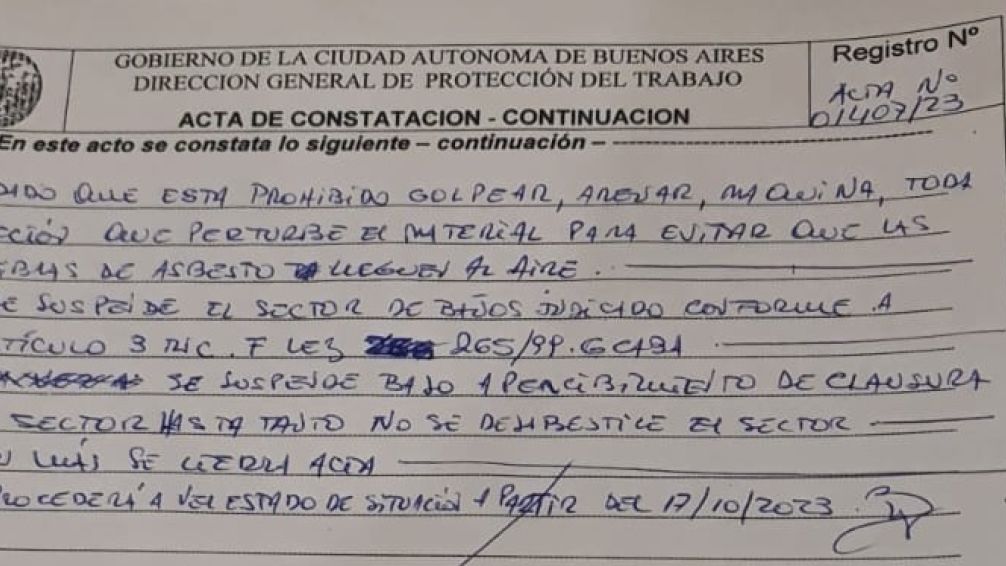 GOBIERNO DE LA CIUDAD AUTONOMA DE BUENOS AIRES
DIRECCION GENERAL DE PROTECCIÓN DEL TRABAJO
ACTA DE CONSTATACION - CONTINUACION
Registro Nº
ACTA Nº
01407/23
En este acto se constata lo siguiente – continuación –
QUE ESTA PROHIBIDO GOLPEAR, ARENAR, MAQUINA, TODA
CCIÓN QUE PERTURBE EL MATERIAL PARA EVITAR QUE LAS
BRAS DE ASBESTO LLEGUEN AL AIRE.
E SUSPENDE EL SECTOR DE BAÑOS INDICADO CONFORME A
TÍCULO 3 INC. F LEY 265/99. GCABA
SE SUSPENDE BAJO APERCIBIMIENTO DE CLAUSURA
SECTOR HASTA TANTO NO SE DESASBESTICE EL SECTOR
MÁS SE CIERRA ACTA
ROCEDERÁ A VER ESTADO DE SITUACIÓN A PARTIR DEL 17/10/2023.